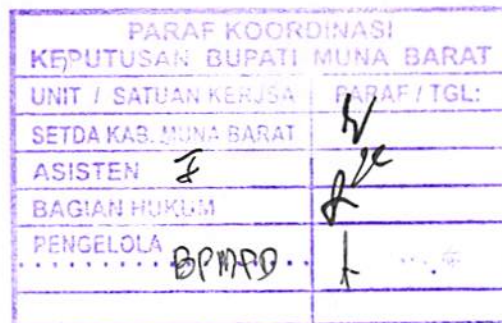 PARAF KOORDINASI
KEPUTUSAN BUPATI MUNA BARAT
UNIT / SATUAN KERJSA PARAF / TGL:
SETDA KAB. MUNA BARAT
ASISTEN I
BAGIAN HUKUM
PENGELOLA
BPMPD